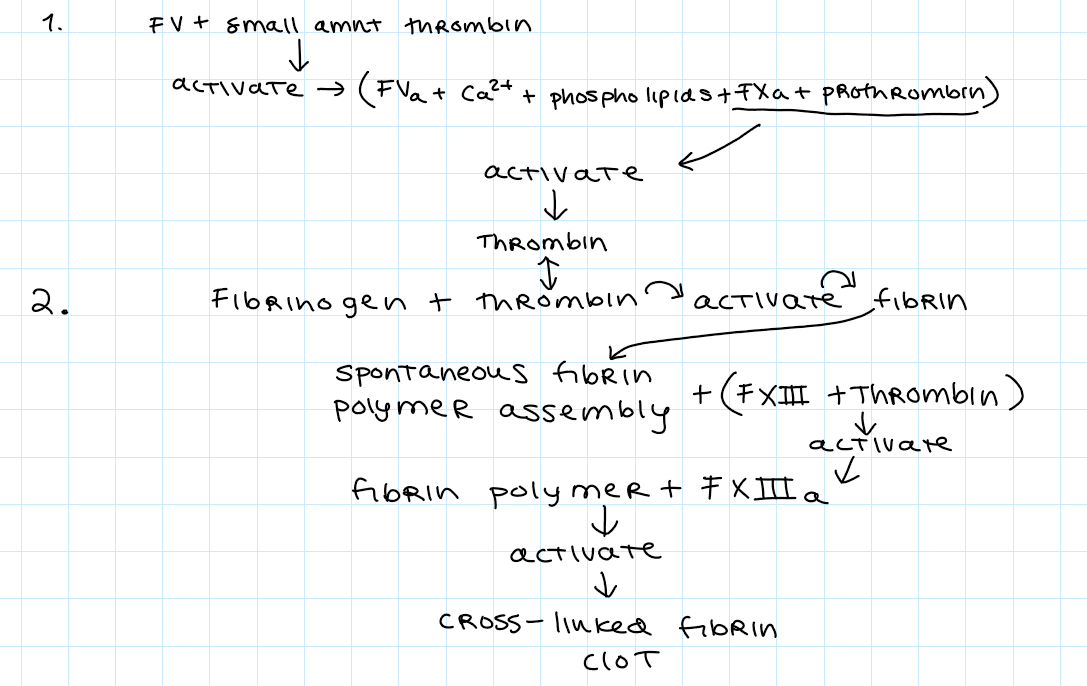 1. FV + small amnt thrombin
↓
activate → (FVa + Ca2+ + phospholipids + FXa + prothrombin)
activate
↓
Thrombin
↕
2. Fibrinogen + thrombin activate fibrin
spontaneous fibrin
polymer assembly + (FXIII + Thrombin)
↓
activate
fibrin polymer + FXIIIa
↓
activate
↓
cross-linked fibrin
clot